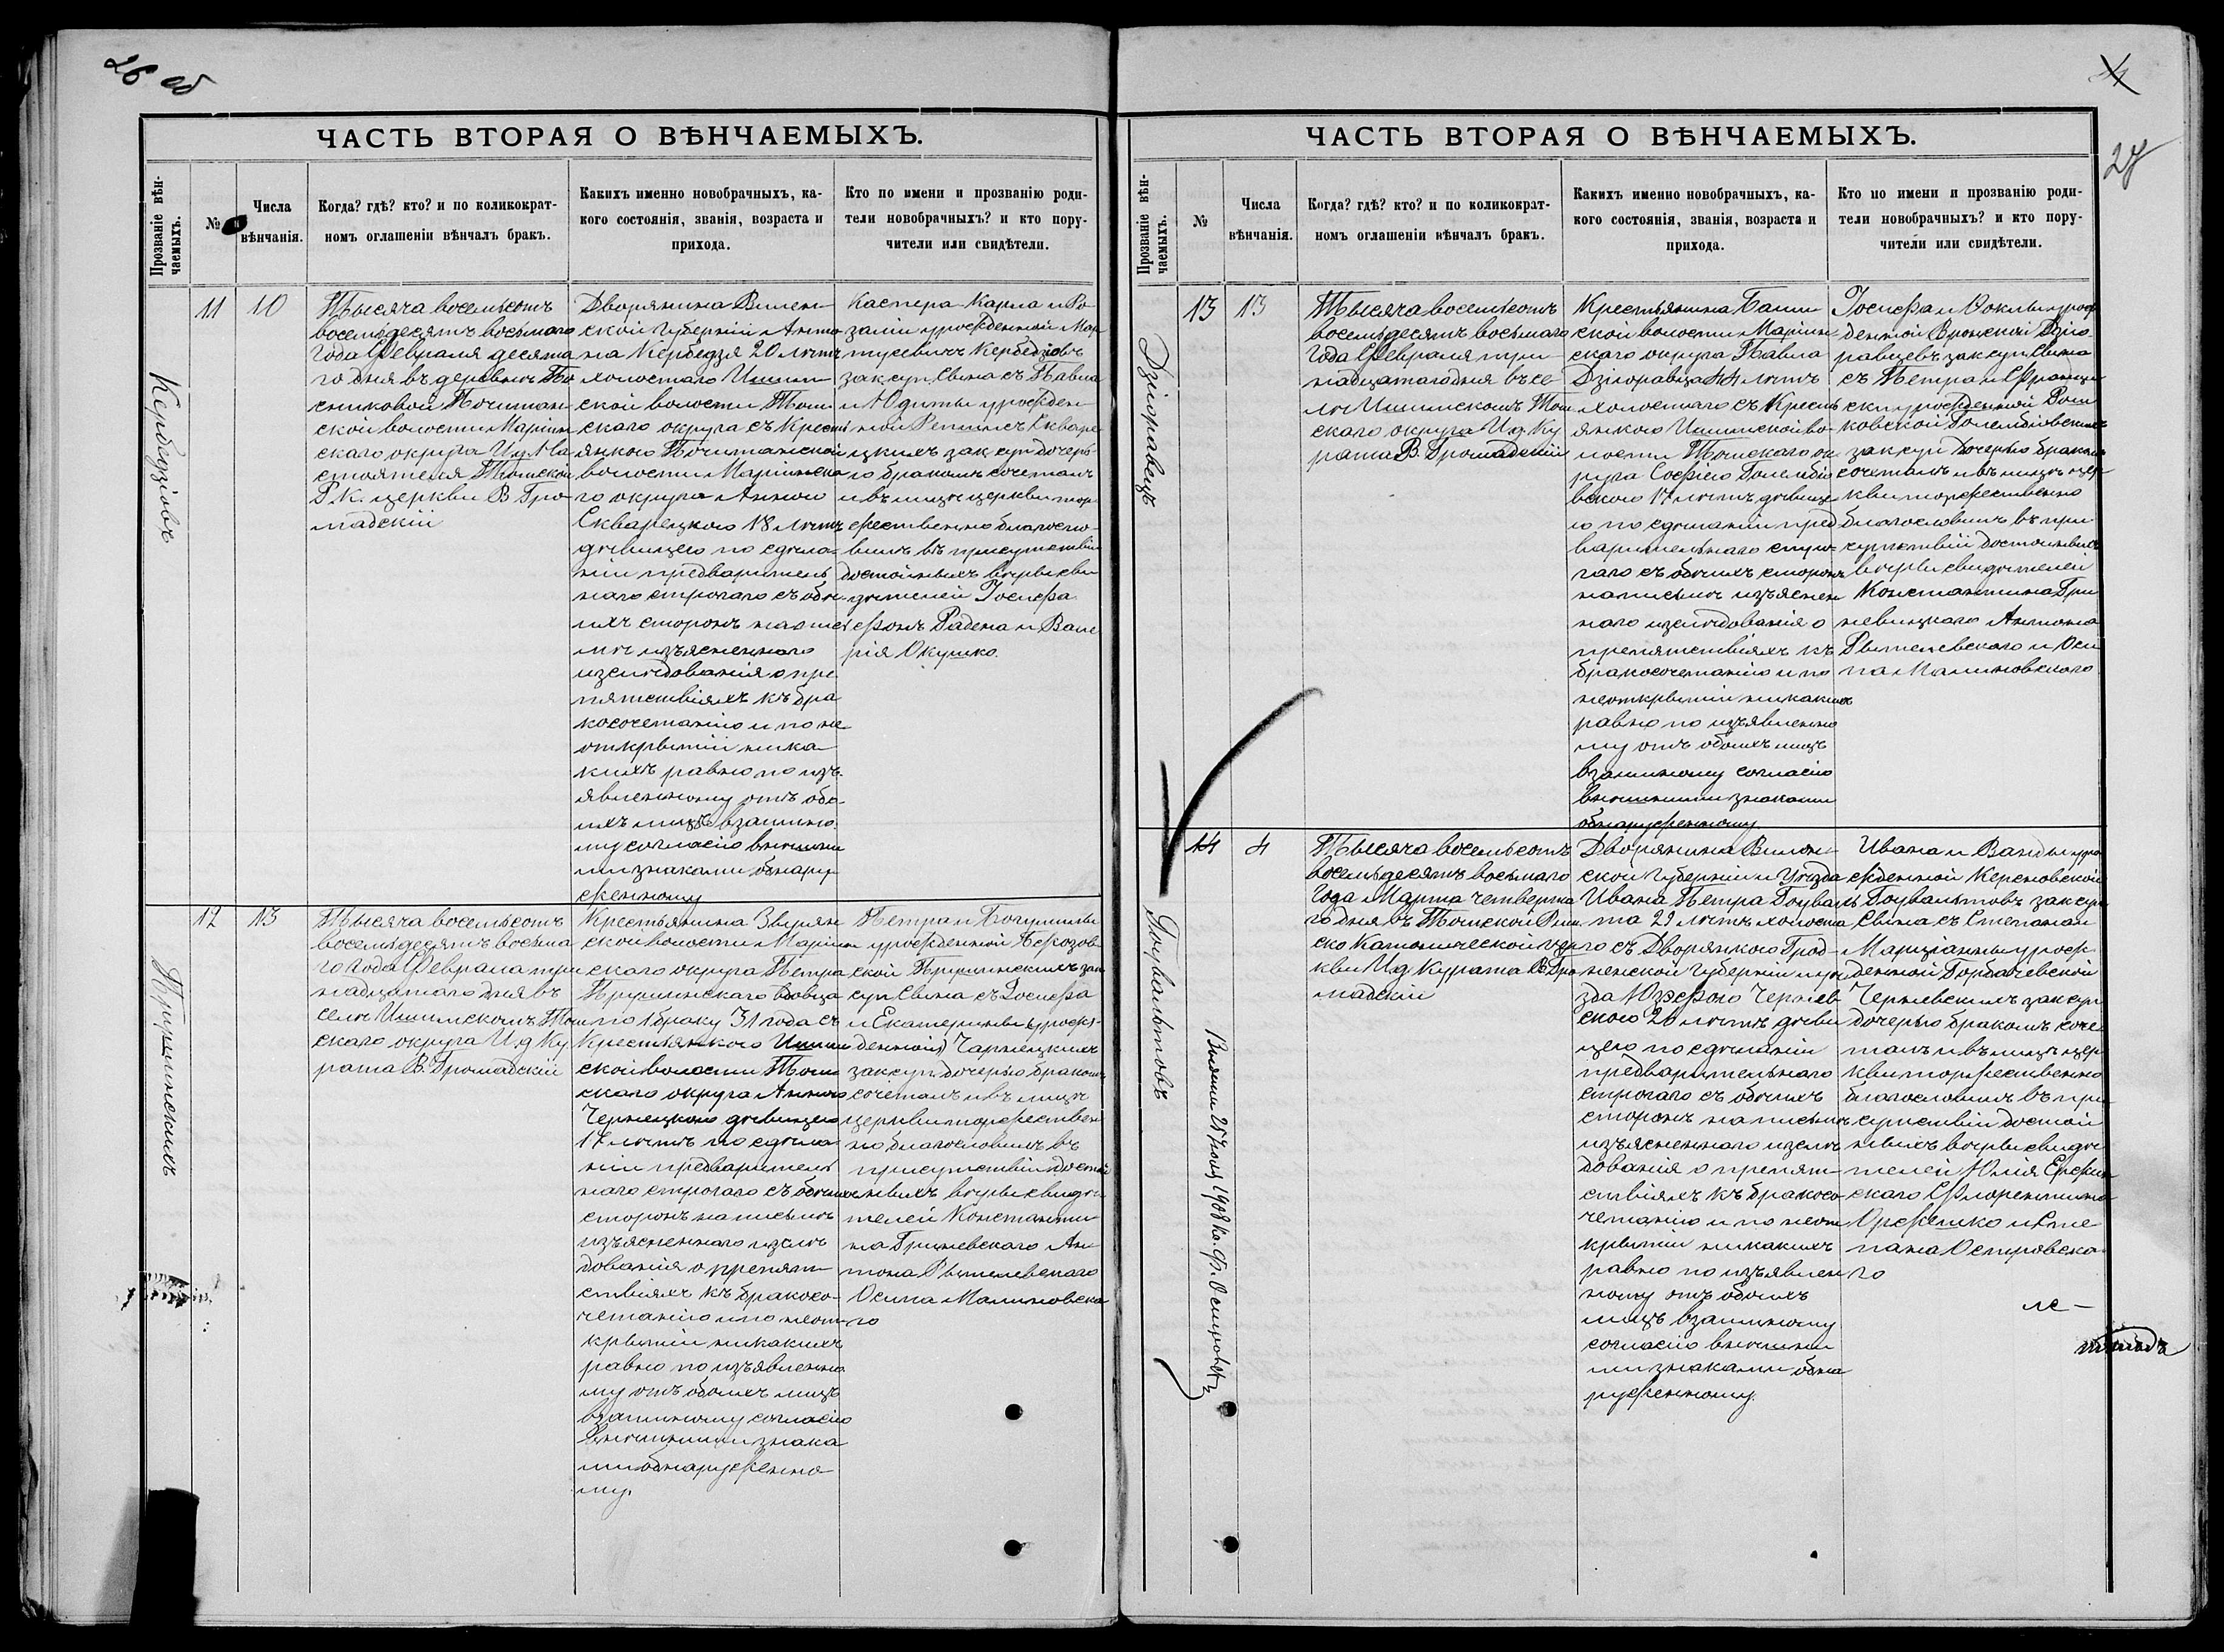 26 об
ЧАСТЬ ВТОРАЯ О ВѢНЧАЕМЫХЪ.
Прозваніе вѣн-
чаемыхъ.
№
Числа
вѣнчанія.
Когда? гдѣ? кто? и по коликократ-
номъ оглашеніи вѣнчалъ бракъ.
Какихъ именно новобрачныхъ, ка-
кого состоянія, званія, возраста и
прихода.
Кто по имени и прозванію роди-
тели новобрачныхъ? и кто пору-
чители или свидѣтели.
Кербедзіовъ
11
10
Тысяча восемьсотъ
восемьдесятъ восьмаго
года Февраля десята
го дня въ деревнѣ
сниковой Почитан-
ской волости Маріин
скаго округа И д На
стоятеля Томской
Р. К. церкви В Гро-
мадскій
Дворянина Вилен-
ской губерніи Анто
на Кербедзя 20 лѣтъ
холостаго Ишим-
ской волости Том-
скаго округа съ Крест
янкою Почитанской
волости Маріинска
го округа Анною
Скварецкою 18 лѣтъ
дѣвицею по сдѣла-
ніи предваритель
наго строгаго съ обѣ-
ихъ сторонъ на пись
мѣ изъясненнаго
изслѣдованія о пре
пятствіяхъ къ бра
косочетанію и по не
открытіи ника-
кихъ равно по изъ-
явленному отъ обо-
ихъ лицъ взаимно-
му согласію внѣшни
ми знаками обнару
женному
Каспера-Карла и Ро
заліи урожденной Мар
тусевичъ Кербедзіовъ
зак. суп. Сына съ Павла
и Юдиты урожден
ной Репшисъ Скваре
цкихъ зак. суп. дочерь-
ю бракомъ сочеталъ
и въ лицѣ церкви тор
жественно благосло-
вилъ въ присутствіи
достойныхъ вѣры сви
дѣтелей Іосифа
фонъ Радена и Вале
рія Окушко.
Прушинскихъ
12
13
Тысяча восемьсотъ
восемьдесятъ восьма
го года Февраля три
надцатаго дня въ
селѣ Ишимскомъ Том
скаго округа И д Ку
рата В. Громадскій
Крестьянина Зырян
ской волости Маріин
скаго округа Петра
Прушинскаго вдовца
по 1 браку 31 года съ
Крестьянкою Ишим
ской волости Том
скаго округа Анною
Чернецкою дѣвицею
17 лѣтъ по сдѣла
ніи предваритель
наго строгаго съ обѣихъ
сторонъ на письмѣ
изъясненнаго изслѣ
дованія о препят-
ствіяхъ къ бракосо-
четанію и по неот-
крытіи никакихъ
равно по изъявленно
му отъ обоихъ лицъ
взаимному согласію
внѣшними знака
ми обнаруженно-
му.
Петра и Богумилы
урожденной Бржозов
ской Прушинскихъ зак.
суп. Сына съ Іосифа
и Екатерины урож-
денной Чарнецкихъ
зак. суп. дочерью бракомъ
сочеталъ и въ лицѣ
церкви торжествен
но благословилъ въ
присутствіи достой
ныхъ вѣры свидѣ
телей Константи
на Гриневскаго Ан
тона Рытелевскаго
Осипа Малиновска
го
27
ЧАСТЬ ВТОРАЯ О ВѢНЧАЕМЫХЪ.
Прозваніе вѣн-
чаемыхъ.
№
Числа
вѣнчанія.
Когда? гдѣ? кто? и по коликократ-
номъ оглашеніи вѣнчалъ бракъ.
Какихъ именно новобрачныхъ, ка-
кого состоянія, званія, возраста и
прихода.
Кто по имени и прозванію роди-
тели новобрачныхъ? и кто пору-
чители или свидѣтели.
Дзіоравецъ
13
13
Тысяча восемьсотъ
восемьдесятъ восьмаго
года Февраля три-
надцатаго дня въ се-
лѣ Ишимскомъ Том
скаго округа И д Ку
рата В. Громадскій
Крестьянина Баим
ской волости Маріин-
скаго округа Павла
Дзіоравца 44 лѣтъ
холостаго съ Кресть
янкою Ишимской во-
лости Томскаго ок
руга Софіею Голембіо
вскою 17 лѣтъ дѣвице
ю по сдѣланіи пред
варительнаго стро-
гаго съ обѣихъ сторонъ
на письмѣ изъяснен
наго изслѣдованія о
препятствіяхъ къ
бракосочетанію и по
неоткрытіи никакихъ
равно по изъявленно
му отъ обоихъ лицъ
взаимному согласію
внѣшними знаками
обнаруженному.
Іосифа и Феклы урож
денной Вронской Дзіо-
равцевъ зак. суп. Сына
съ Петра и Францис
ки урожденной Рот
ковской Голембіовскихъ
зак. суп. дочерью бракомъ
сочеталъ и въ лицѣ цер
кви торжественно
благословилъ въ при
сутствіи достойныхъ
вѣры свидѣтелей
Константина Гри
невицкаго Антона
Рытелевскаго и Оси
па Малиновскаго
Гоувальтовъ
14
4
Тысяча восемьсотъ
восемьдесятъ восьмаго
года Марта четверта
го дня въ Томской Рим
ско Католической цер
кви И.д Курата В. Гро
мадскій
Дворянина Вилен-
ской губерніи и Уѣзда
Ивана Петра Гоуваль
та 29 лѣтъ холоста
го съ Дворянкою Грод-
ненской губерніи и уѣ
зда Юзефою Черняев
скою 20 лѣтъ дѣви
цею по сдѣланіи
предварительнаго
строгаго съ обѣихъ
сторонъ на письмѣ
изъясненнаго изслѣ
дованія о препят-
ствіяхъ къ бракосо-
четанію и по неот
крытіи никакихъ
равно по изъявлен
ному отъ обоихъ
лицъ взаимному
согласію внѣшни
ми знаками обна
руженному.
Ивана и Ванды уро
жденной Керсновской
Гоувальтовъ зак. суп
Сына съ Степана и
Марціанны урож-
денной Горбачевской
Черневскихъ зак. суп
дочерью бракомъ соче
талъ и въ лицѣ цер
кви торжественно
благословилъ въ при-
сутствіи достой
ныхъ вѣры свидѣ
телей Юлія Ержин
скаго Флорентина
Оржешко и Сте
пана Островска
го